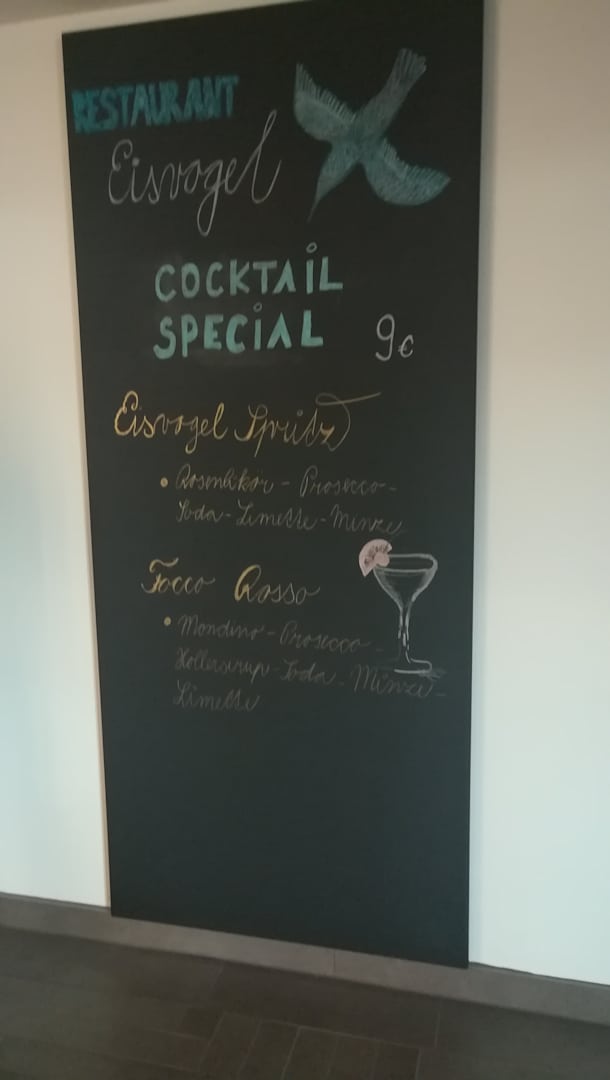 RESTAURANT
Eisvogel
COCKTAIL
SPECIAL 9€
Eisvogel Spritz
• Rosenlikör - Prosecco -
Soda - Limette - Minze
Focco Rosso
• Mondino - Prosecco -
Hollersirup - Soda - Minze -
Limette